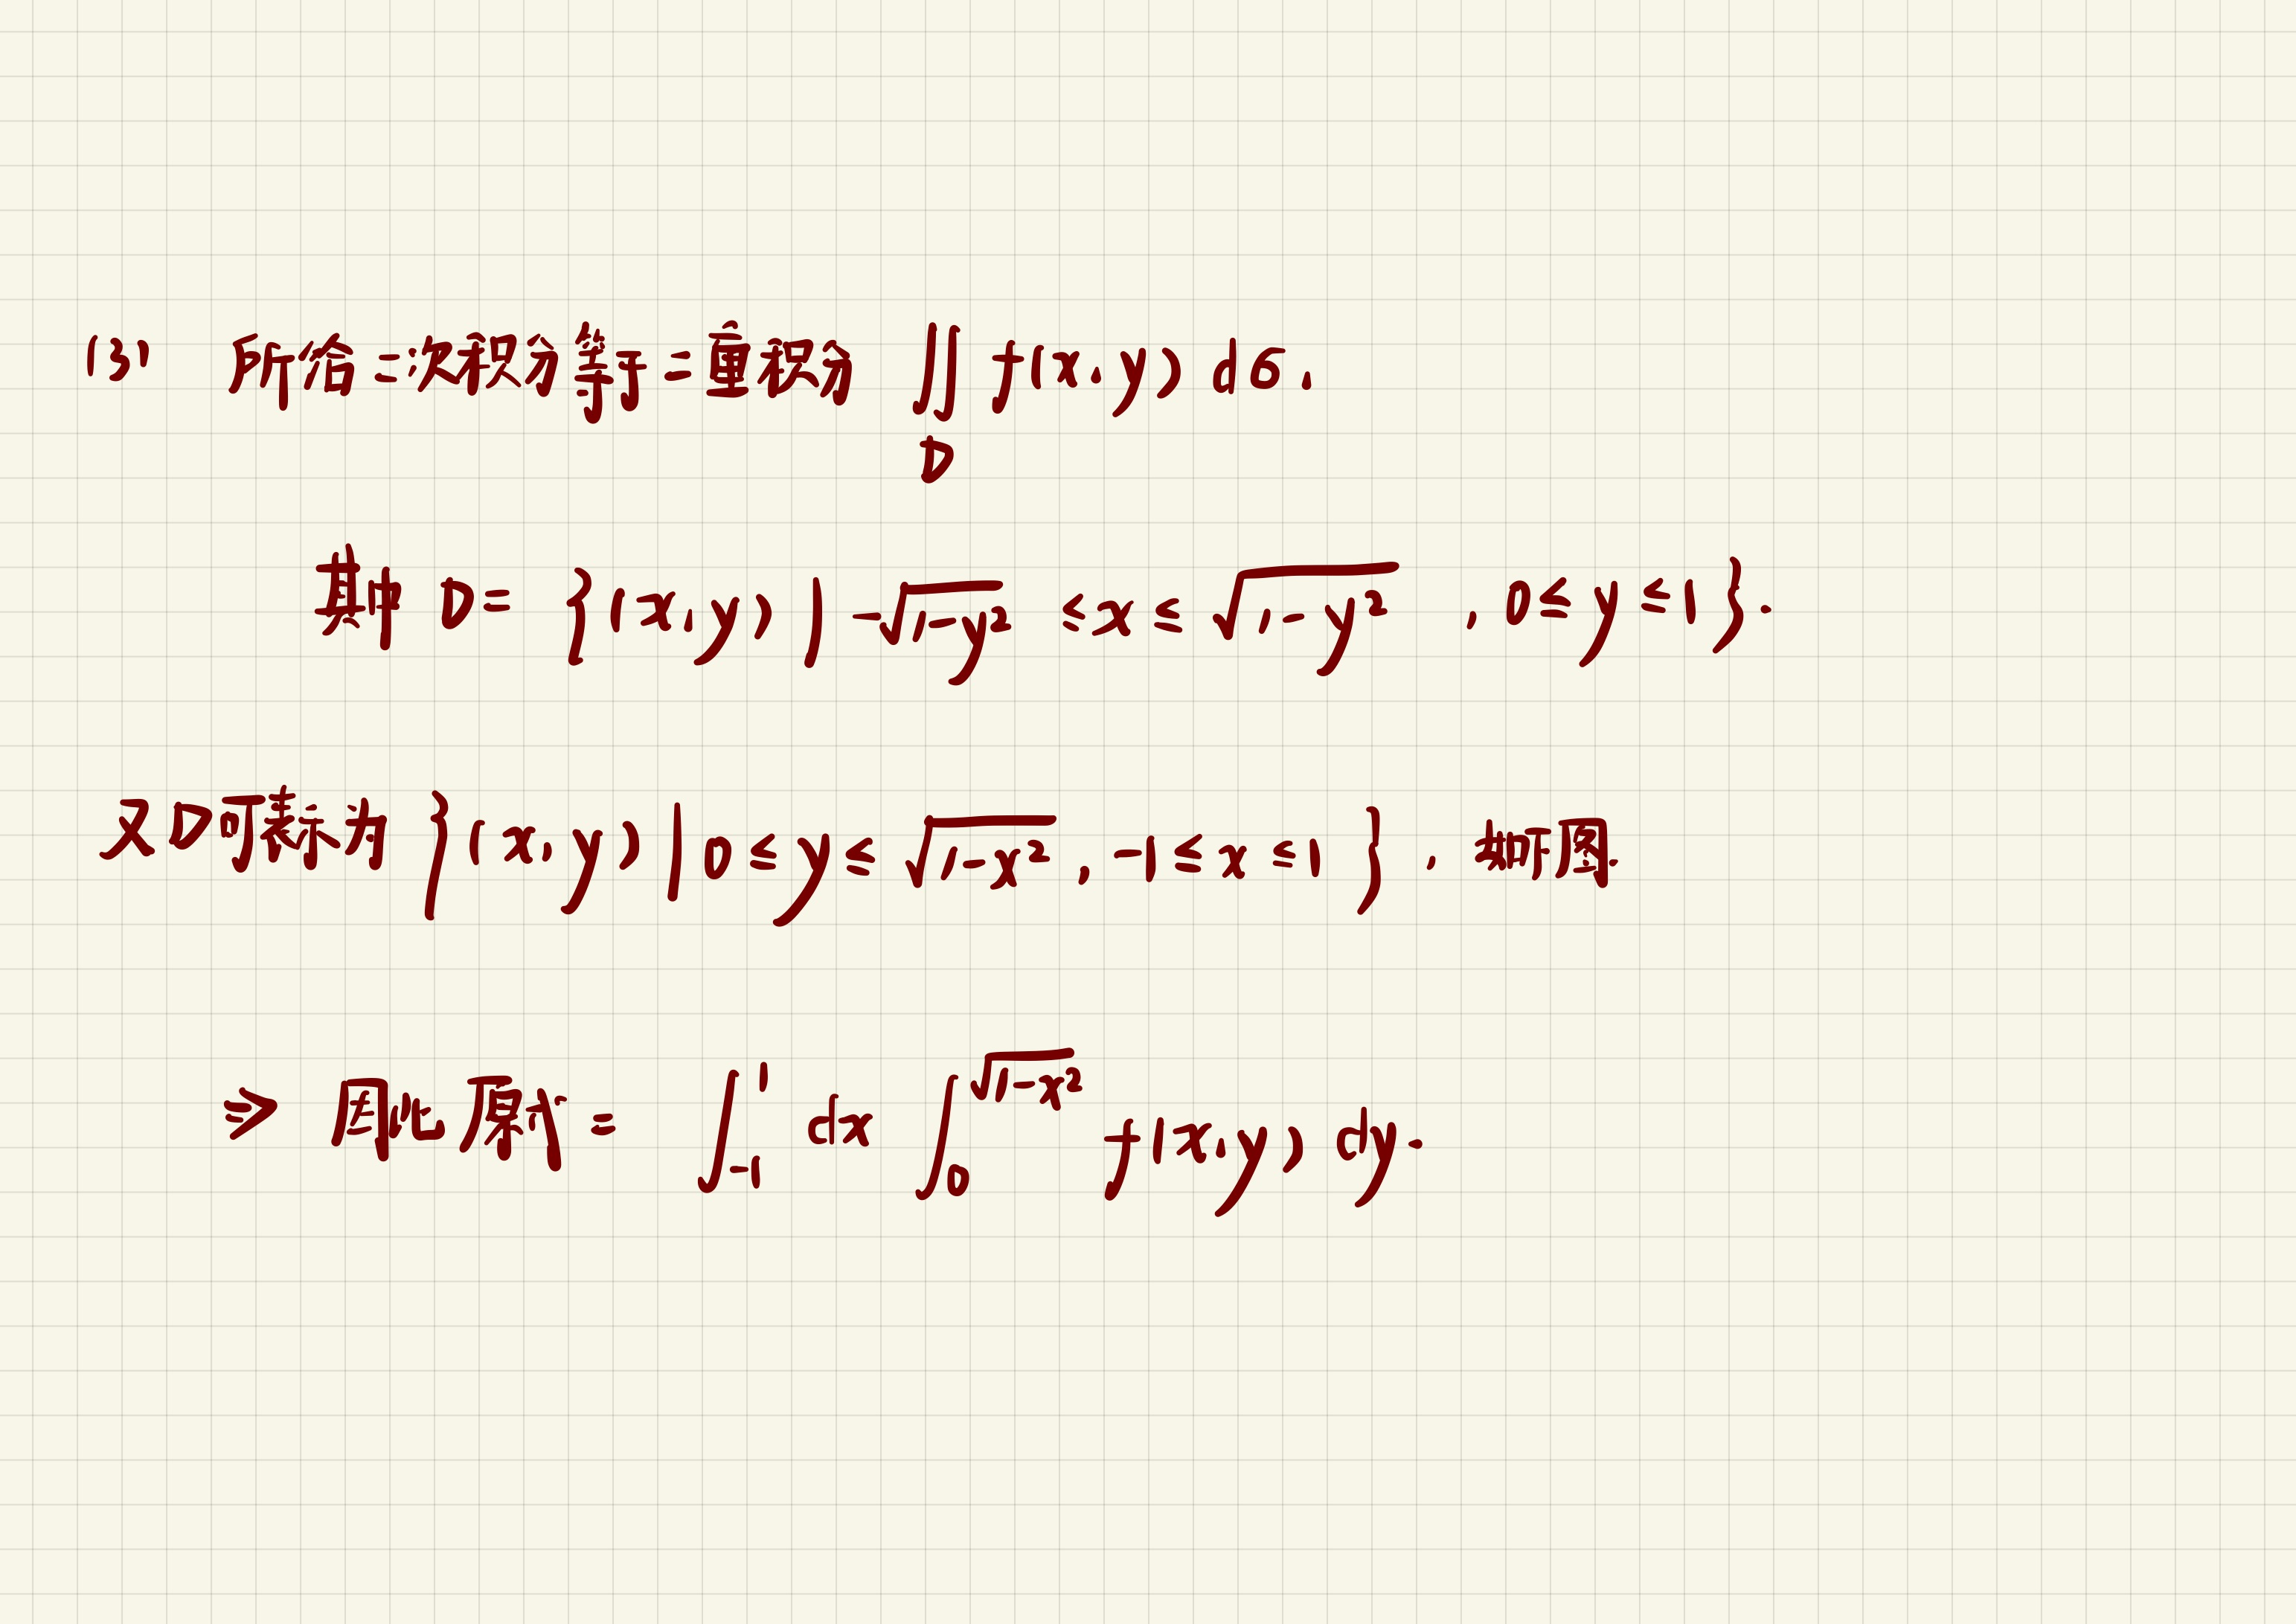 (3) 所给二次积分等于二重积分 ∬_D f(x,y) dσ,
其中 D= {(x,y) | -√(1-y²) ≤x≤ √(1-y²) , 0≤y≤1}.
又D可表示为 {(x,y) | 0≤y≤√(1-x²), -1≤x≤1} , 如下图.
⇒ 因此原式= ∫_{-1}^{1} dx ∫_{0}^{√(1-x²)} f(x,y) dy.